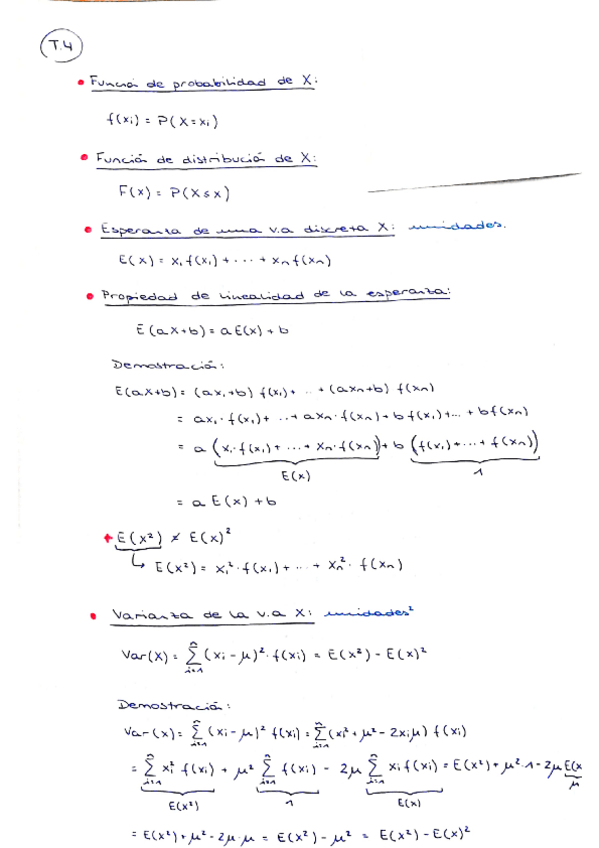 T.4
• Función de probabilidad de X:
f(xi) = P(X=xi)
• Función de distribución de X:
F(x) = P(X≤x)
• Esperanza de una v.a discreta X: unidades.
E(X) = x₁ f(x₁) + ... + xn f(xn)
• Propiedad de linealidad de la esperanza:
E(aX+b) = a E(x) + b
Demostración:
E(aX+b) = (ax₁+b) f(x₁) + .. + (axn+b) f(xn)
= ax₁·f(x₁) + ..+ axn·f(xn) + b f(x₁) +... + bf(xn)
= a (x₁·f(x₁) + ... + xn·f(xn)) + b (f(x₁) + ... + f(xn))
E(x) 1
= a E(x) + b
+ E(x²) ≠ E(x)²
↳ E(x²) = x₁²·f(x₁) + ... + xn²·f(xn)
• Varianza de la v.a X: unidades²
Var(X) = Σ(i=1, n) (xi - μ)²·f(xi) = E(x²) - E(x)²
Demostración:
Var(x) = Σ(i=1, n) (xi - μ)² f(xi) = Σ(i=1, n) (xi² + μ² - 2xiμ) f(xi)
= Σ(i=1, n) xi² f(xi) + μ² Σ(i=1, n) f(xi) - 2μ Σ(i=1, n) xi f(xi) = E(x²) + μ²·1 - 2μ E(x
E(x²) 1 E(x) μ
= E(x²) + μ² - 2μ·μ = E(x²) - μ² = E(x²) - E(x)²